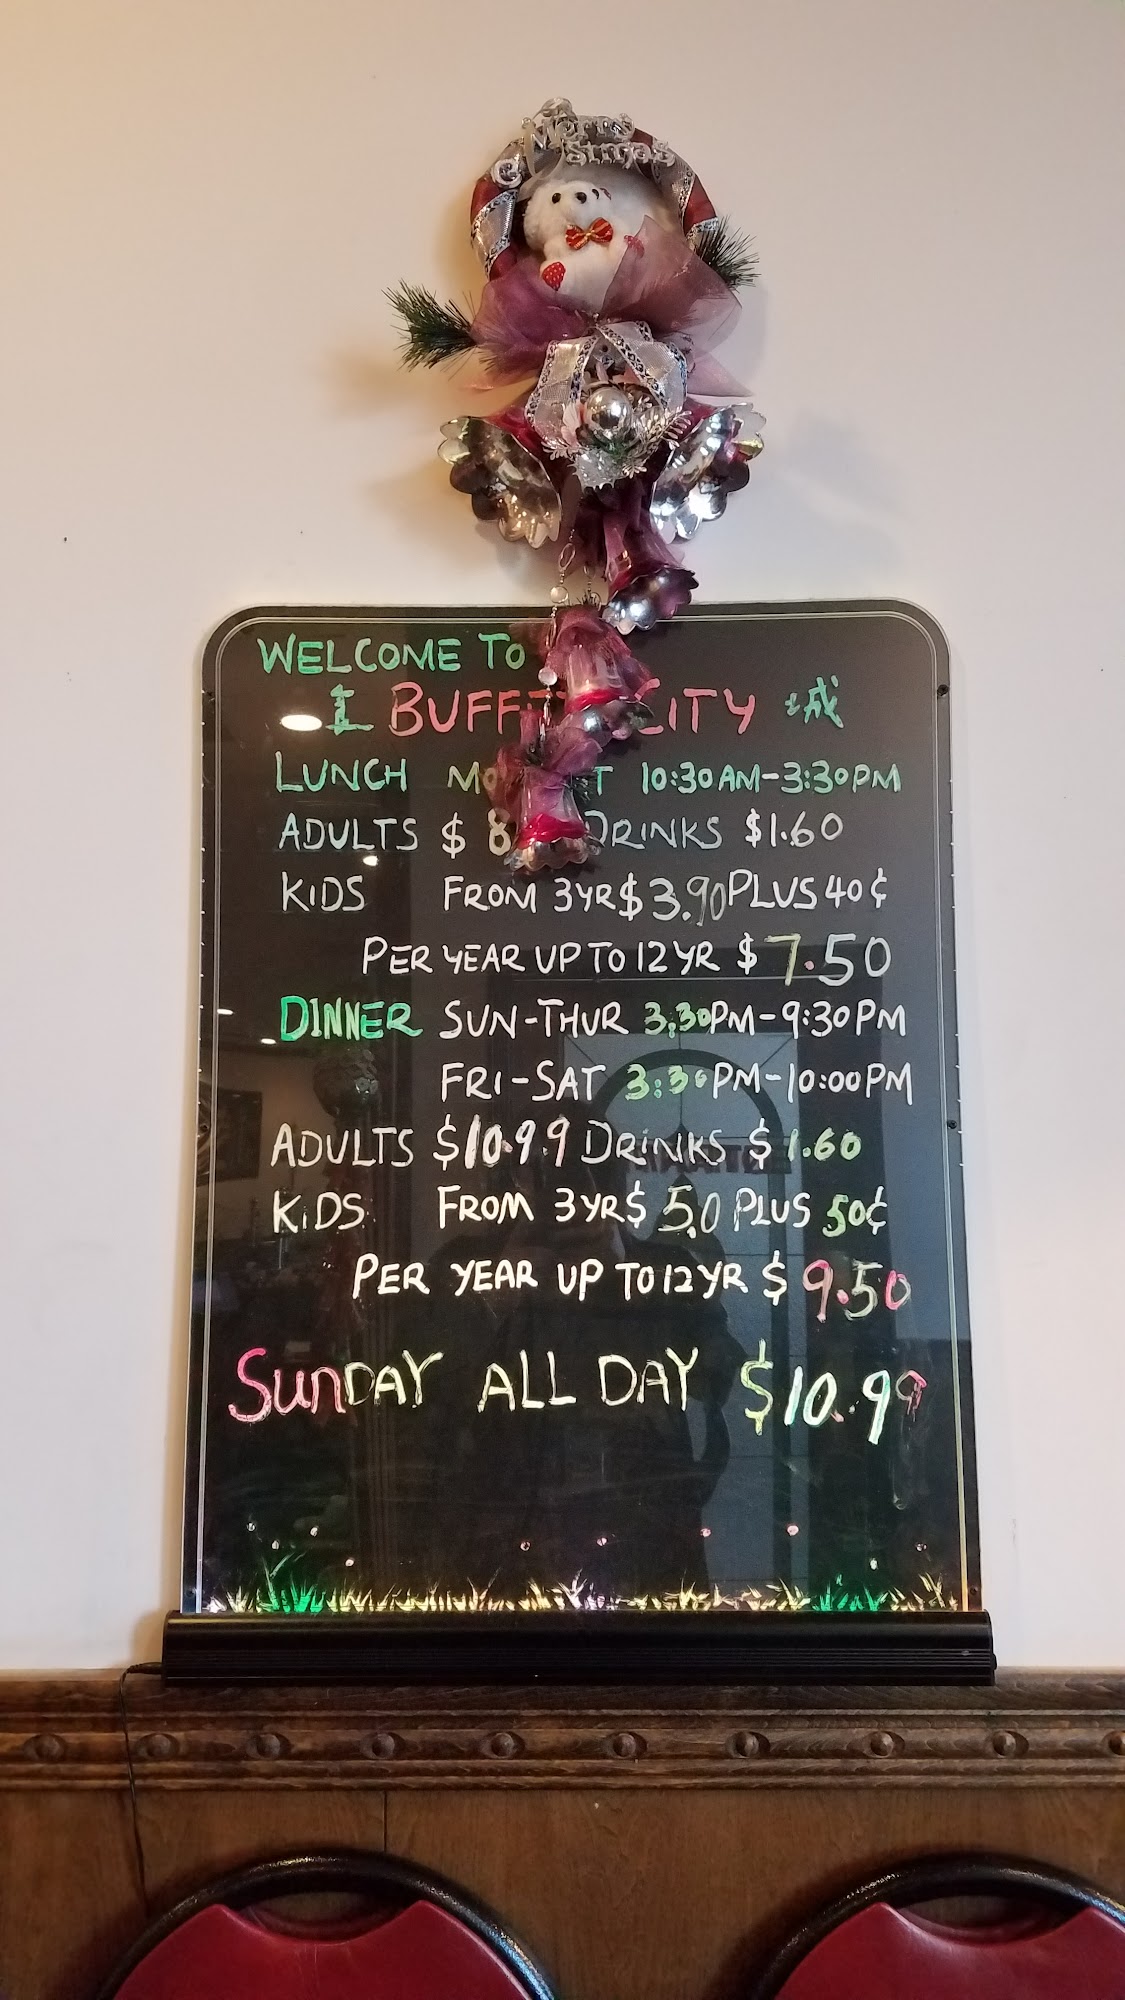 Merry
WELCOME TO
BUFFET CITY 城
LUNCH 10:30AM-3:30PM
ADULTS $ 8 DRINKS $1.60
KIDS FROM 3YR $3.90 PLUS 40¢
PER YEAR UP TO 12YR $7.50
DINNER SUN-THUR 3:30PM-9:30PM
FRI-SAT 3:30PM-10:00PM
ADULTS $10.99 DRINKS $1.60
KIDS FROM 3YR $5.0 PLUS 50¢
PER YEAR UP TO 12YR $9.50
SunDAY ALL DAY $10.99